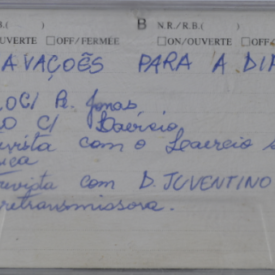 R.B.( ) B N.R./R.B.( )
OUVERTE □ OFF/FERMÉE □ ON/OUVERTE □ OFF/
AVAÇOÊS PARA A DIA
LOC/ A. Jonas
O C/ Laércio
vista com o Laercio
ica
revista com D. JUVENTINO
retransmissora.